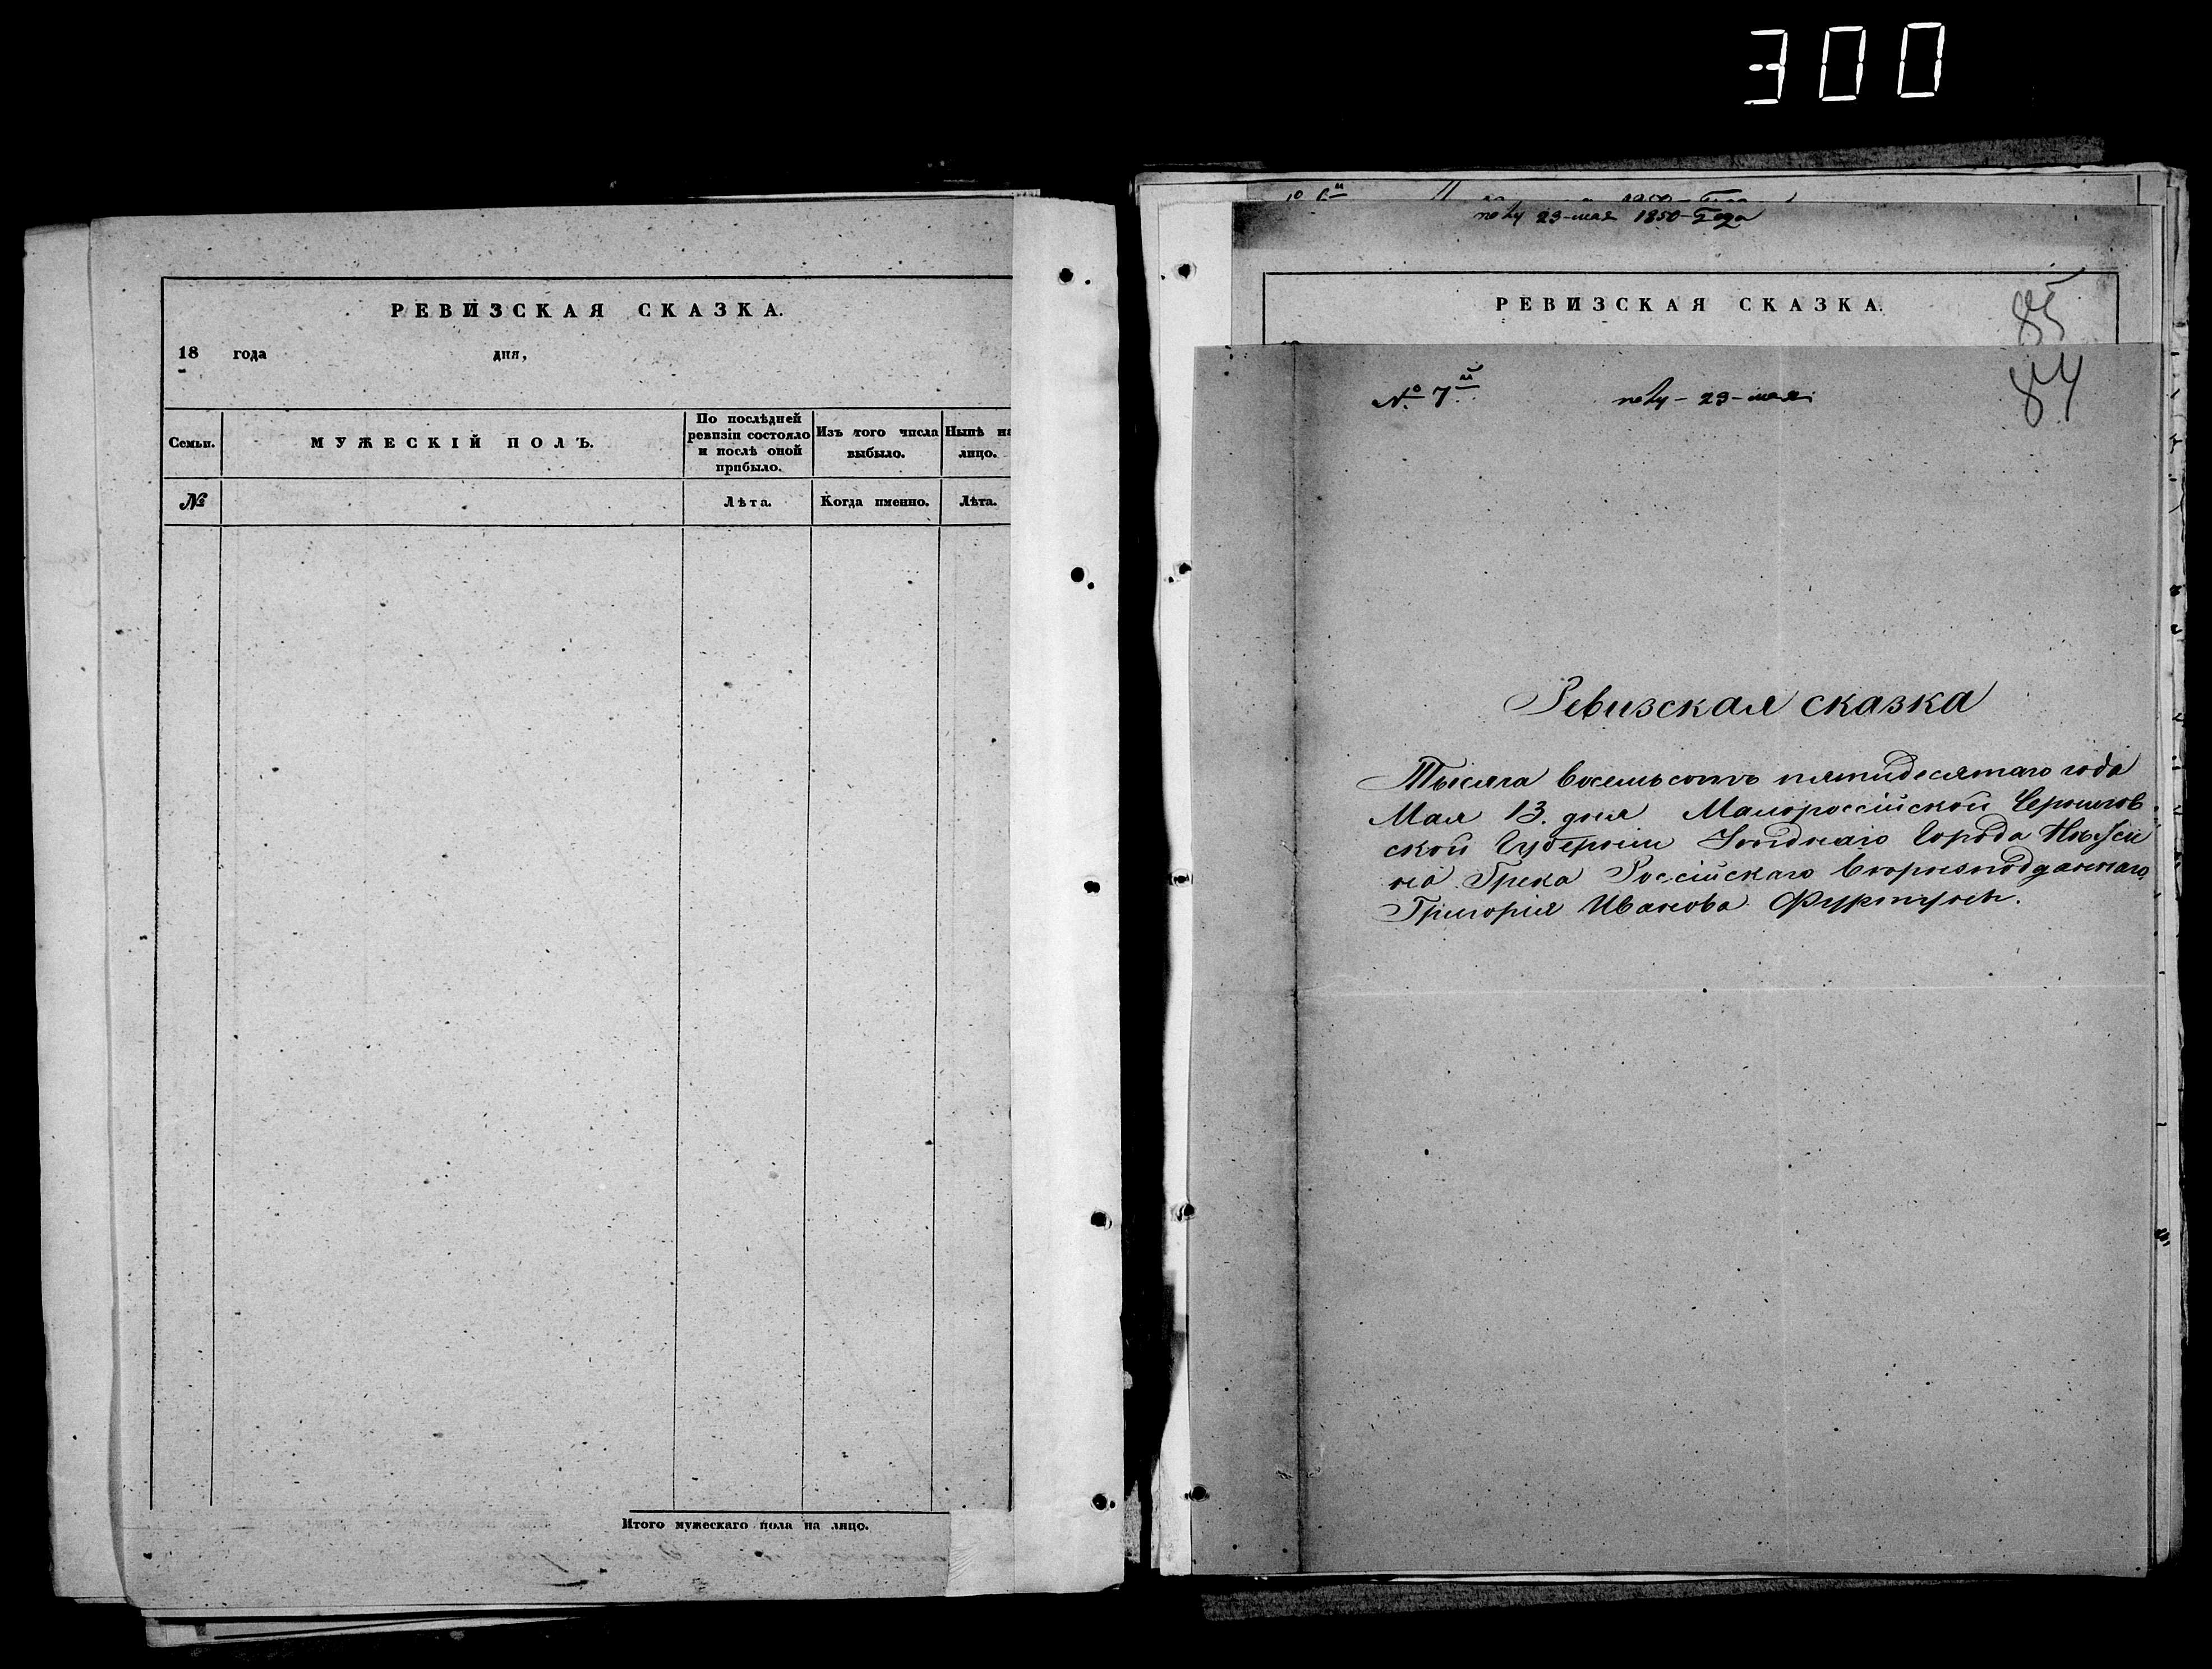 300
РЕВИЗСКАЯ СКАЗКА.
18 года дня,
Семьи.
МУЖЕСКІЙ ПОЛЪ.
По послѣдней
ревизіи состояло
и послѣ оной
прибыло.
Изъ того числа
выбыло.
Нынѣ на
лицо.
№
Лѣта.
Когда именно.
Лѣта.
Итого мужескаго пола на лицо.
23-мая 1850-Года
РЕВИЗСКАЯ СКАЗКА.
85
84
№ 7й
23-мая
Ревизская сказка
Тысяча восемьсотъ пятидесятаго года
Мая 13. дня Малороссійской Чернигов
ской Губерніи Уѣзднаго Города Нѣжи
на Грека Россійскаго вѣрноподданнаго
Григорія Иванова